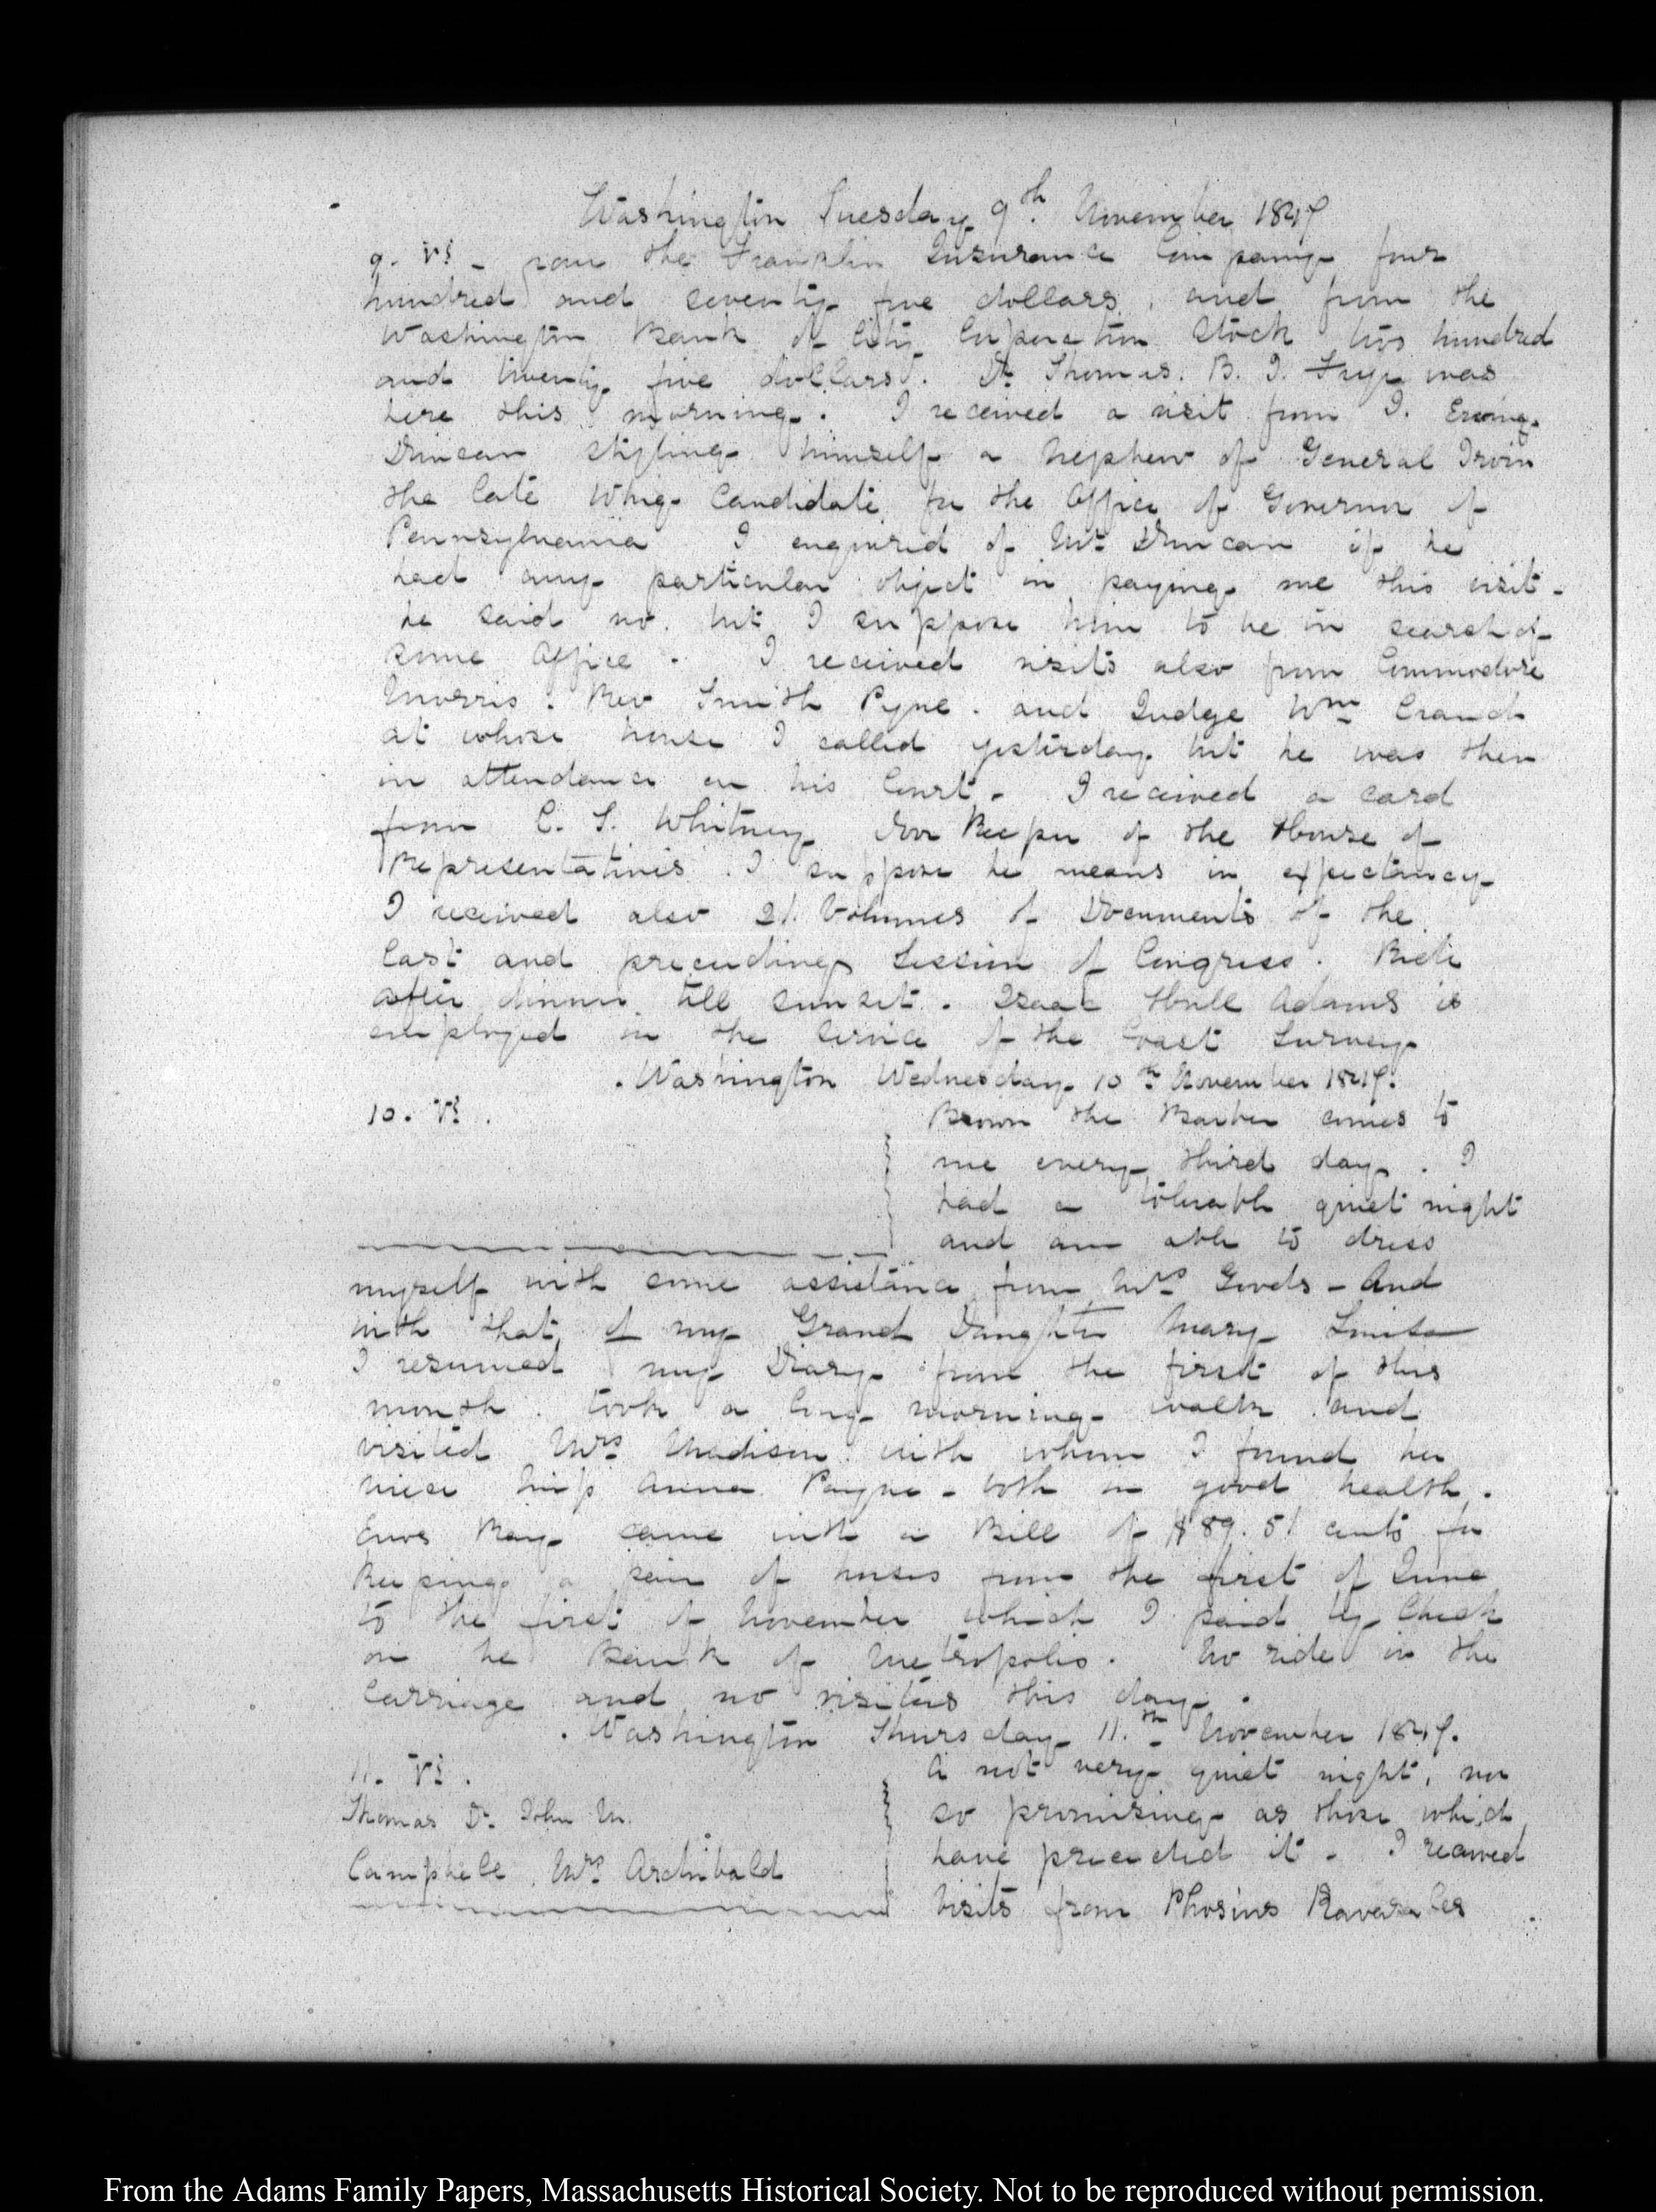 Washington Tuesday 9th. November 1847
9. VI. – from the Franklin Insurance Company four
hundred and seventy five dollars, and from the
Washington Bank of City Corporation Stock two hundred
and twenty five dollars. Dr. Thomas. B. I. Frye was
here this morning. I received a visit from I. Ewing
Duncan styling himself a Nephew of General Irvin
the late Whig Candidate for the Office of Governor of
Pennsylvania I enquired of Mr. Duncan if he
had any particular object in paying me this visit –
he said no. but I suppose him to be in search of
some Office. I received visits also from Commodore
Morris. Rev Smith Pyne. and Judge Wm Cranch
at whose house I called yesterday but he was then
in attendance on his Court – I received a card
from C. S. Whitney Door Keeper of the House of
Representatives. I suppose he means in expectancy
I received also 21. Volumes of Documents of the
last and preceeding Session of Congress. Ride
after dinner till sunset. Isaac Hull Adams is
employed in the Service of the Coast Survey
Washington Wednesday 10th November 1847.
10. VI.
Brown the Barber comes to
me every third day. I
had a tolerable quiet night
and am able to dress
myself with some assistance from Mrs Goods – And
with that of my Grand Daughter Mary Louisa
I resumed my Diary from the first of this
month. took a long morning walk and
visited Mrs Madison with whom I found her
niece Miss Anna Payne – both in good health.
came with a Bill of $89.51 cents for
keeping a pair of horses from the first of June
to the first of November which I paid by Check
on he Bank of Metropolis. No ride in the
Carriage and no visitors this day.
Washington Thursday 11.th November 1847.
11. VI.
Thomas Dr. John M.
Campbell, Mrs Archibald
A not very quiet night, nor
so promising as those which
have preceeded it – I received
visits from
From the Adams Family Papers, Massachusetts Historical Society. Not to be reproduced without permission.